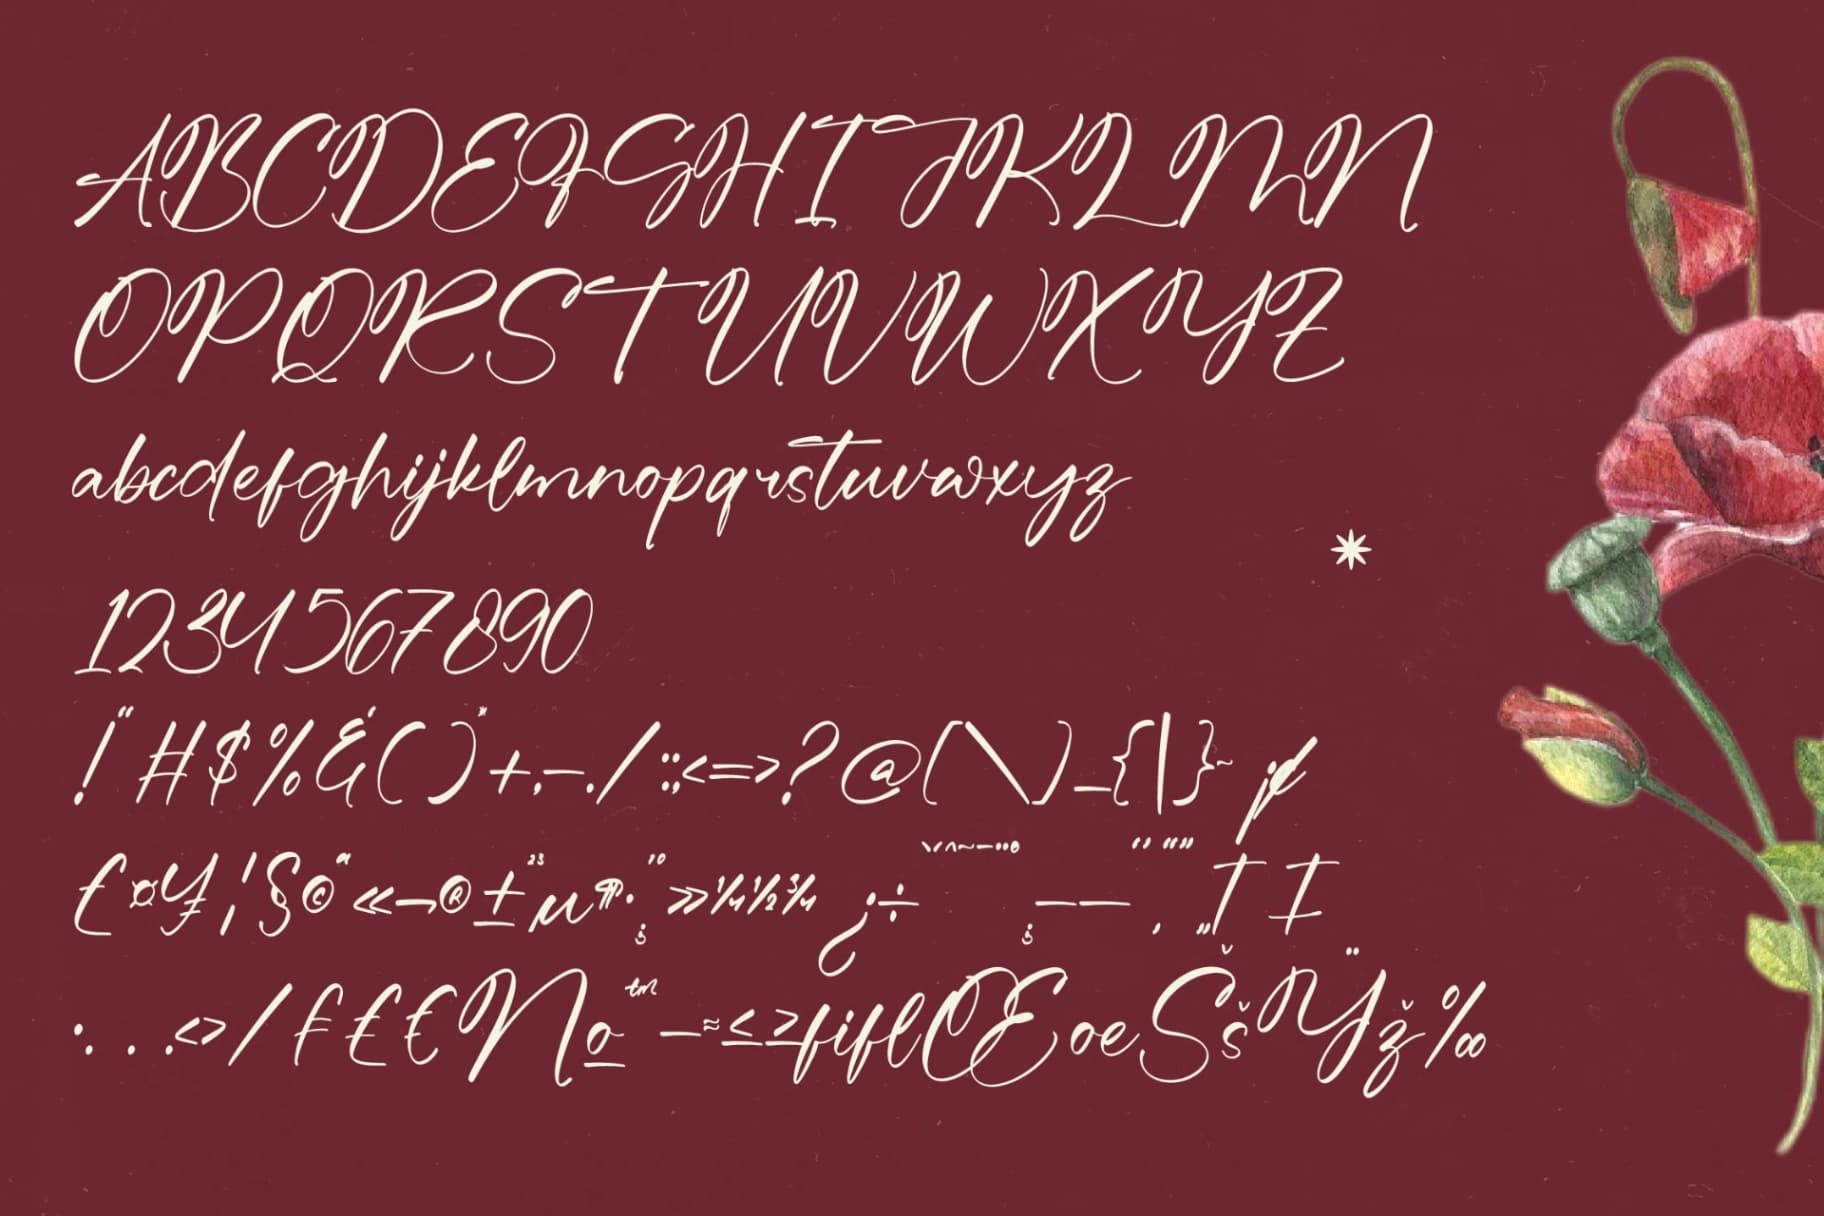 ABCDEFGHIJKLMN
OPQRSTUVWXYZ
abcdefghijklmnopqrstuvwxyz
1234567890
!"#$%&'()*+,-./:;<=>?@[\]_{|}~¡¢
£¤¥¦§¨©ª«¬®¯±²³µ¶·¸¹º»¼½¾¿÷ˇˆ˜–—‚„†‡
•…‹›⁄ƒ£€№™−≈≤≥fiflŒœŠšŸž‰